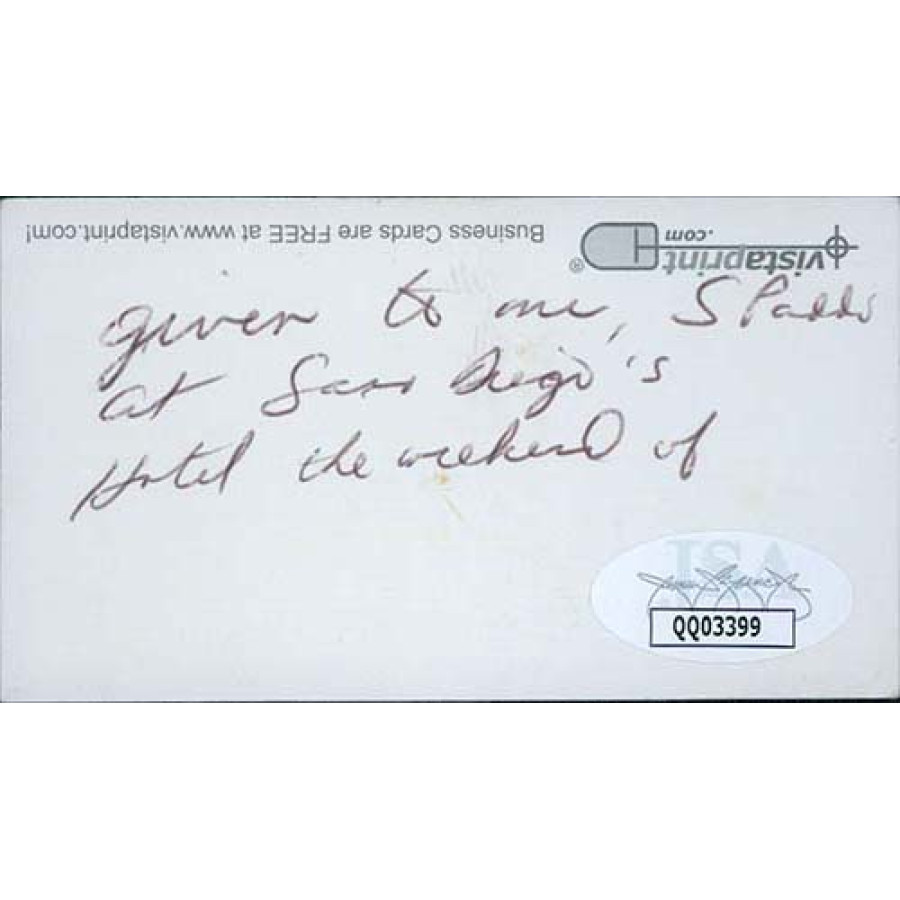 Business Cards are FREE at www.vistaprint.com!
vistaprint®
.com
given to me, S
at San Diego's
Hotel the weekend of
JSA
QQ03399